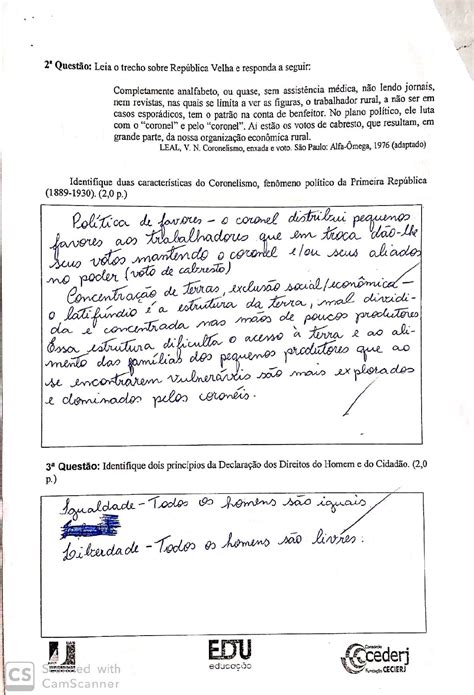 2ª Questão: Leia o trecho sobre República Velha e responda a seguir:
Completamente analfabeto, ou quase, sem assistência médica, não lendo jornais,
nem revistas, nas quais se limita a ver as figuras, o trabalhador rural, a não ser em
casos esporádicos, tem o patrão na conta de benfeitor. No plano político, ele luta
com o "coronel" e pelo "coronel". Aí estão os votos de cabresto, que resultam, em
grande parte, da nossa organização econômica rural.
LEAL, V. N. Coronelismo, enxada e voto. São Paulo: Alfa-Ômega, 1976 (adaptado)
Identifique duas características do Coronelismo, fenômeno político da Primeira República
(1889-1930). (2,0 p.)
Política de favores - o coronel distribui pequenos
favores aos trabalhadores que em troca dão-lhe
seus votos mantendo o coronel e/ou seus aliados
no poder (voto de cabresto)
Concentração de terras, exclusão social/econômica -
o latifúndio é a estrutura da terra, mal dividi-
da e concentrada nas mãos de poucos produtores
Essa estrutura dificulta o acesso à terra e ao ali-
mento das famílias dos pequenos produtores que ao
se encontrarem vulneráveis são mais explorados
e dominados pelos coronéis.
3ª Questão: Identifique dois princípios da Declaração dos Direitos do Homem e do Cidadão. (2,0
p.)
Igualdade - Todos os homens são iguais
Liberdade - Todos os homens são livres.
EDU
educação
Consórcio
cederj
Fundação CECIERJ
CS
Scanned with
CamScanner